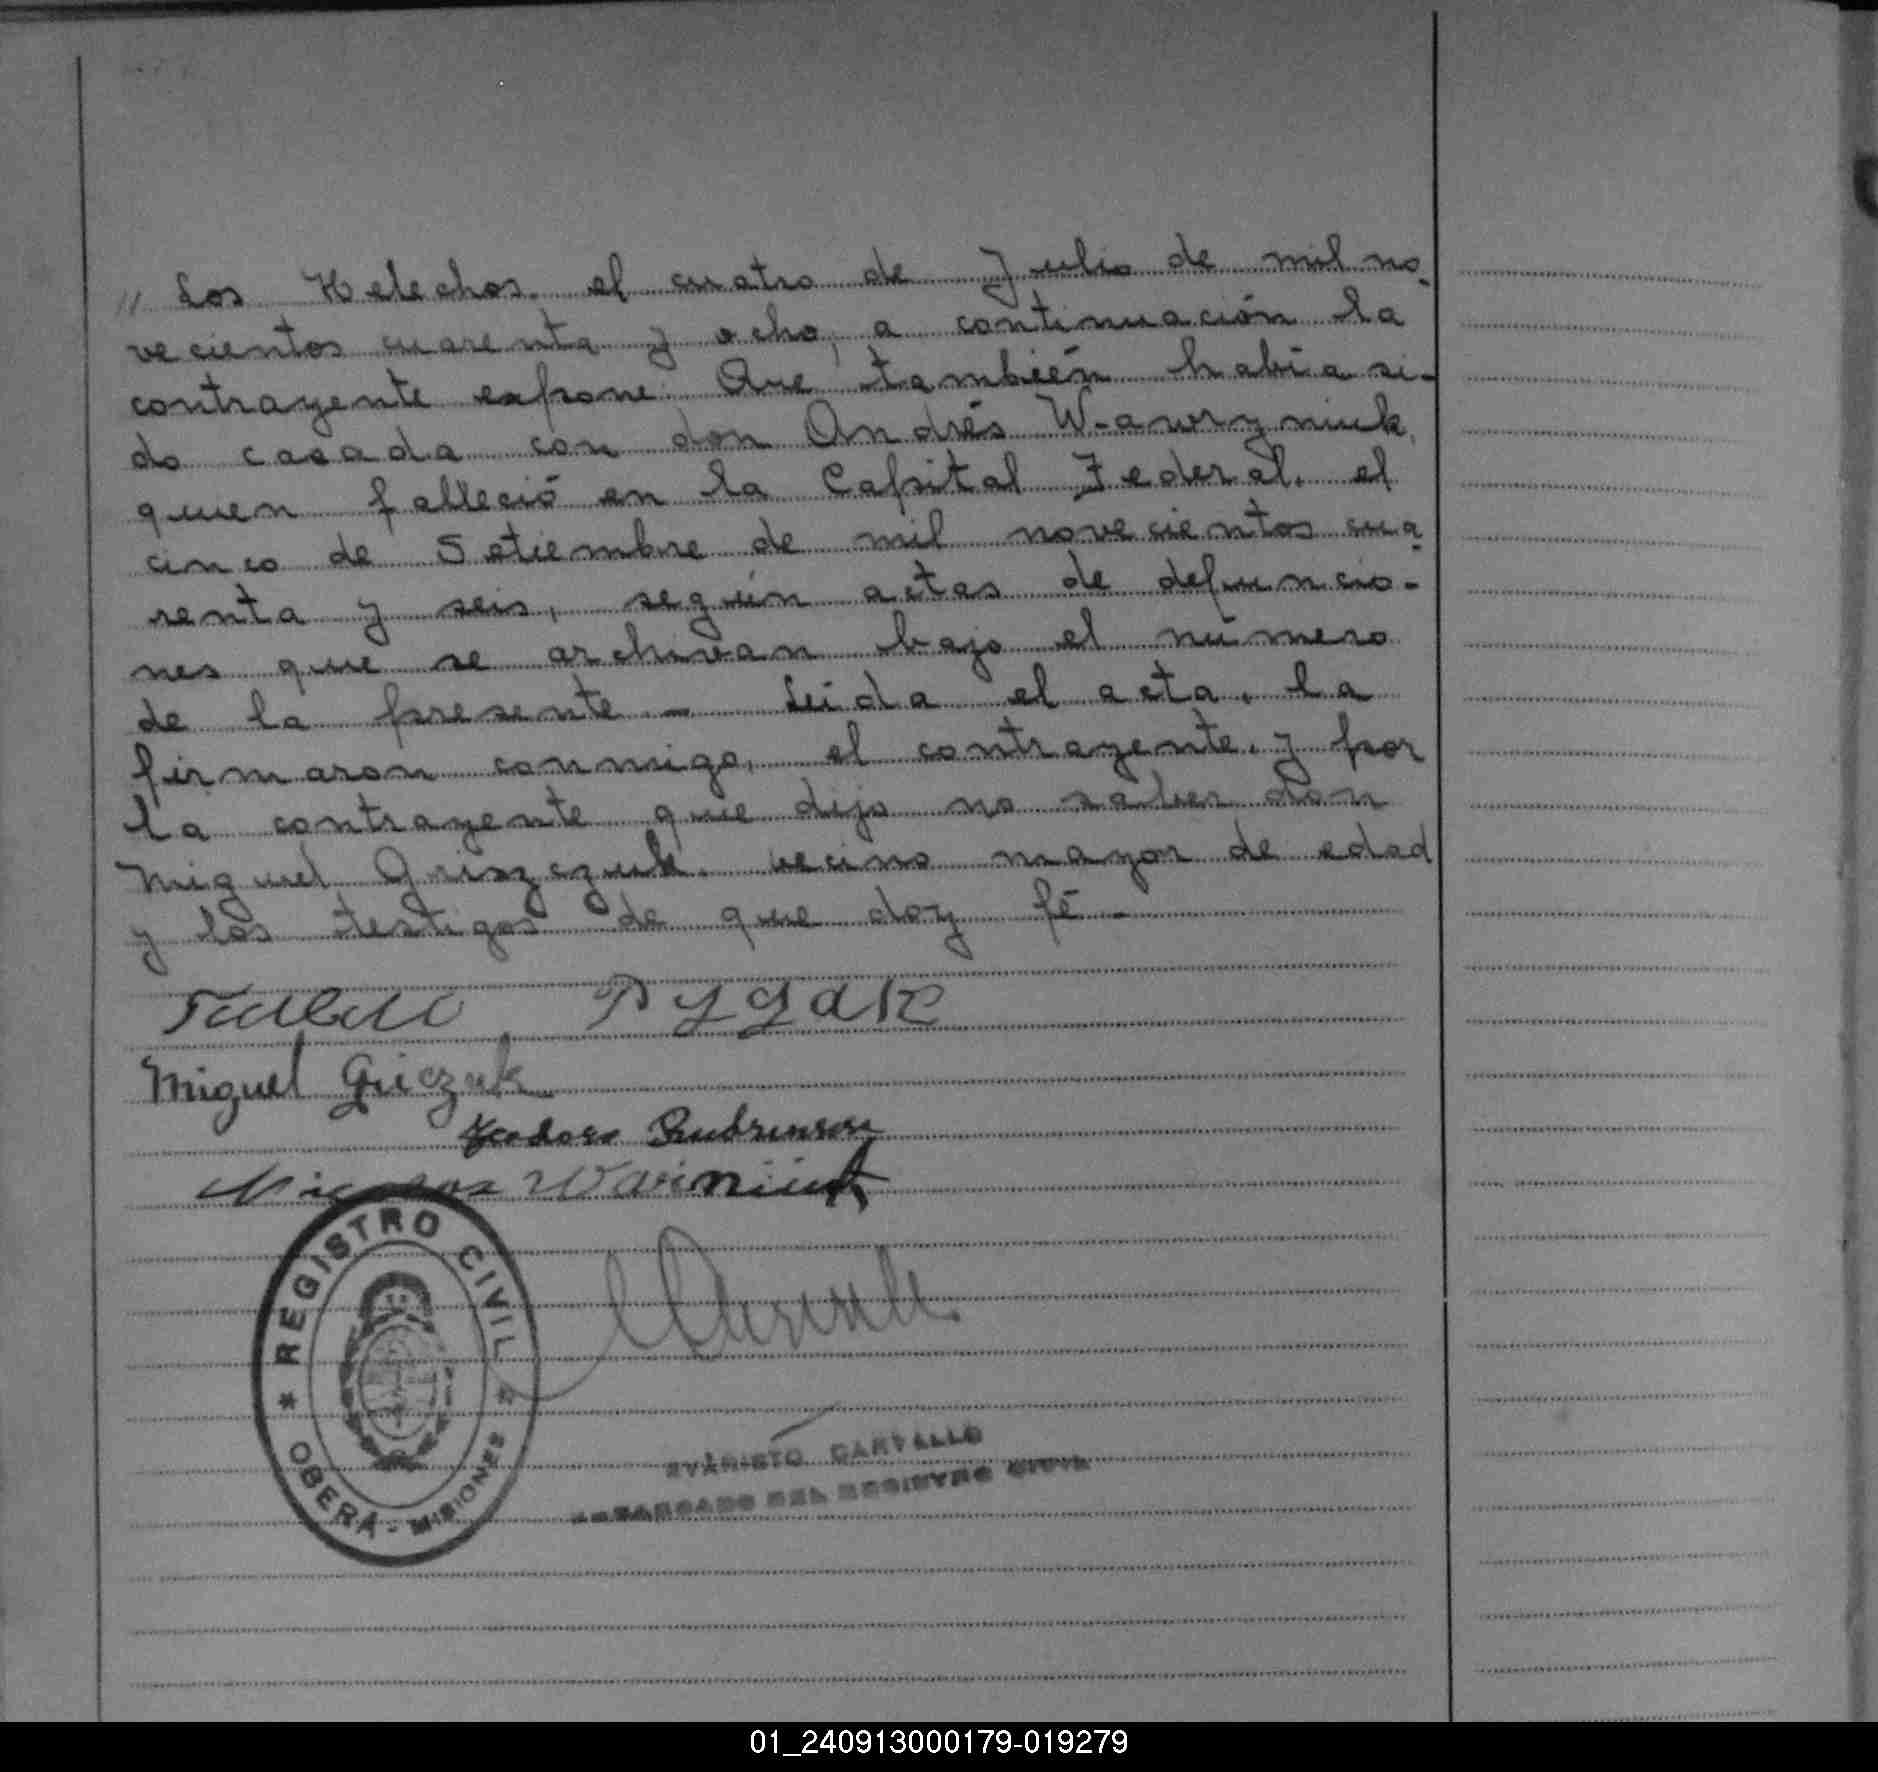 // Los Helechos. el cuatro de Julio de mil no-
vecientos cuarenta y ocho, a continuación la
contrayente expone: Que también había si-
do casada con don Andrés Wawryniuk,
quien falleció en la Capital Federal, el
cinco de Setiembre de mil novecientos cua-
renta y seis, según actas de defuncio-
nes que se archivan bajo el número
de la presente - Leida el acta, la
firmaron conmigo, el contrayente, y por
la contrayente que dijo no saber don
Miguel Griszczuk. vecino mayor de edad
y los testigos de que doy fé -
PYGAK
Miguel Griczuk
Teodoro
Nicolas
REGISTRO CIVIL
* OBERÁ - MISIONES *
EVARISTO CARVALLO
ENCARGADO DEL REGISTRO CIVIL
01_240913000179-019279